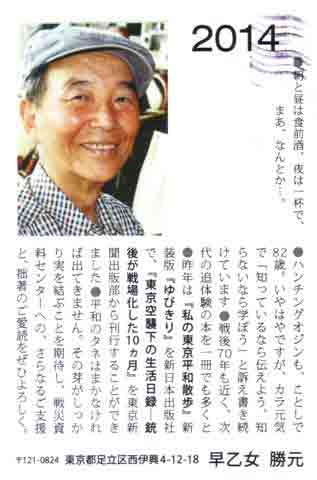 2014
●朝と昼は食前酒、夜は一杯で、
まあ、なんとか…。
●ハンチングオジンも、ことしで
82歳。いやはやですが、カラ元気
で「知っているなら伝えよう、知
らないなら学ぼう」と訴え書き続
けています●戦後70年も近く、次
代の追体験の本を一冊でも多くと
●昨年は『私の東京平和散歩』新
装版『ゆびきり』を新日本出版社
で、『東京空襲下の生活日録―銃
後が戦場化した10ヵ月』を東京新
聞出版部から刊行することができ
ました●平和のタネはまかなけれ
ば出てきません。その芽がしっか
り実を結ぶことを期待し、戦災資
料センターへの、さらなるご支援
と、拙著のご愛読をぜひよろしく。
〒121-0824 東京都足立区西伊興4-12-18 早乙女 勝元